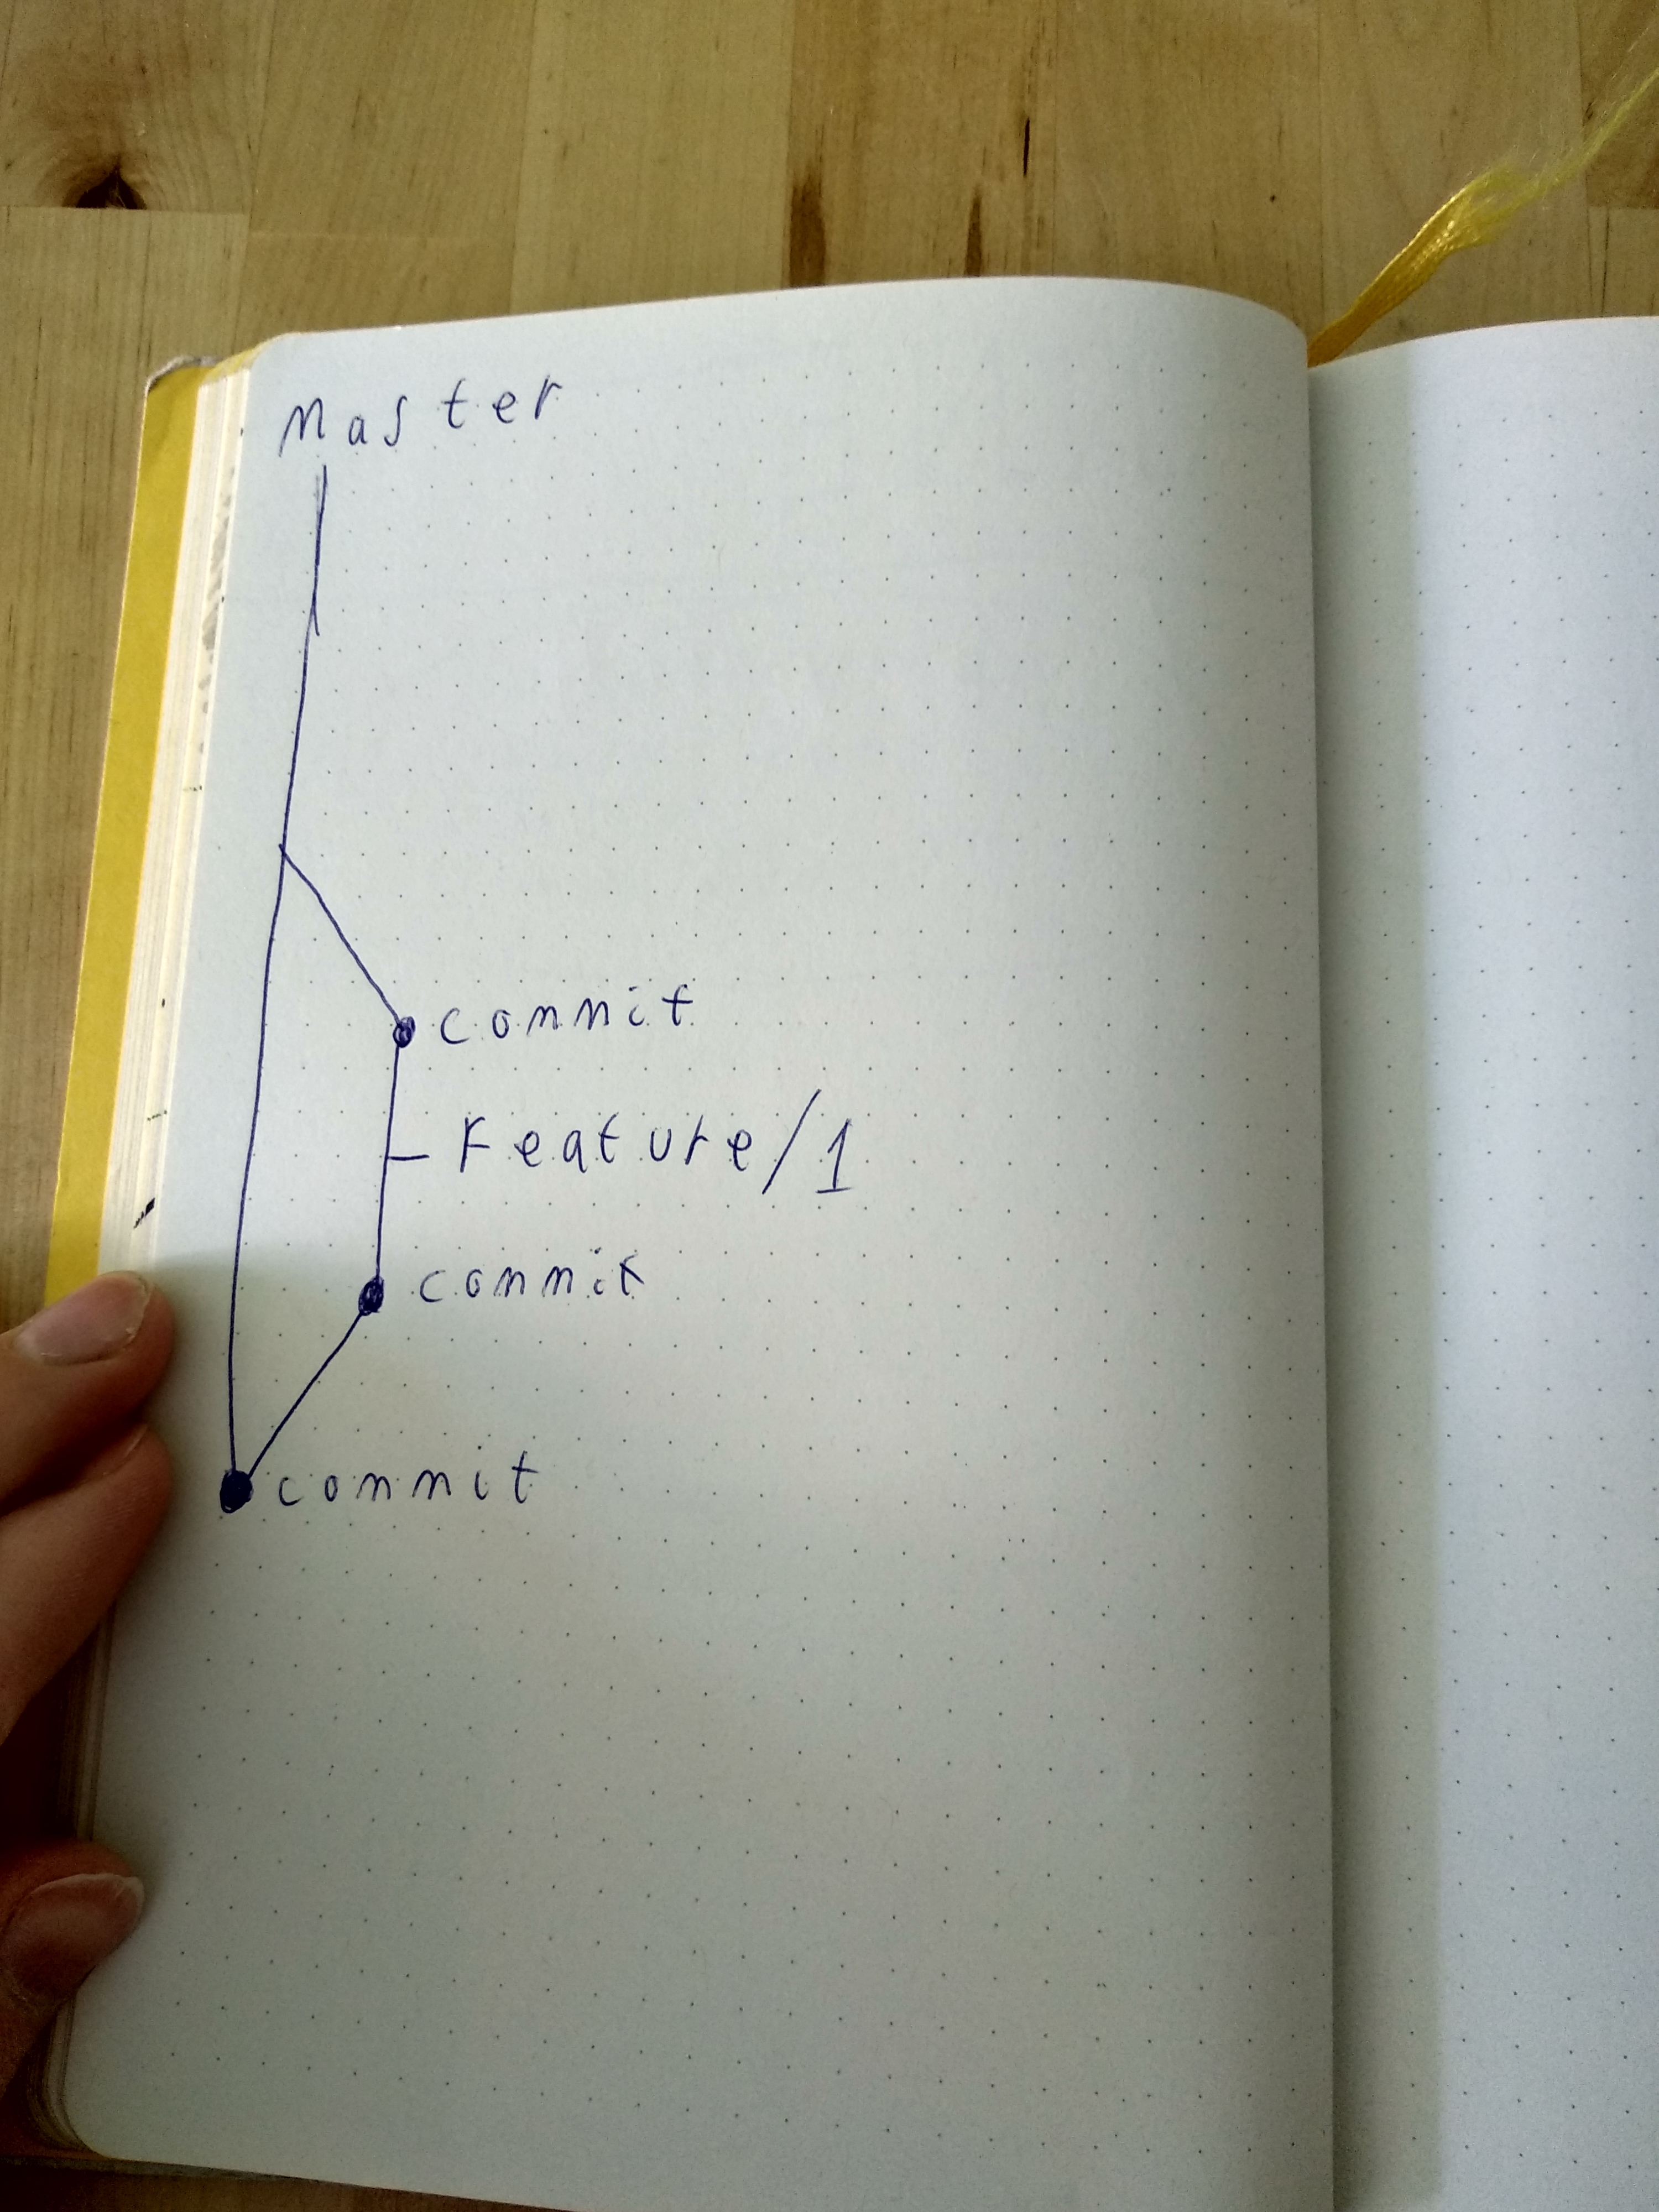 Master
commit
Feature/1
commit
commit